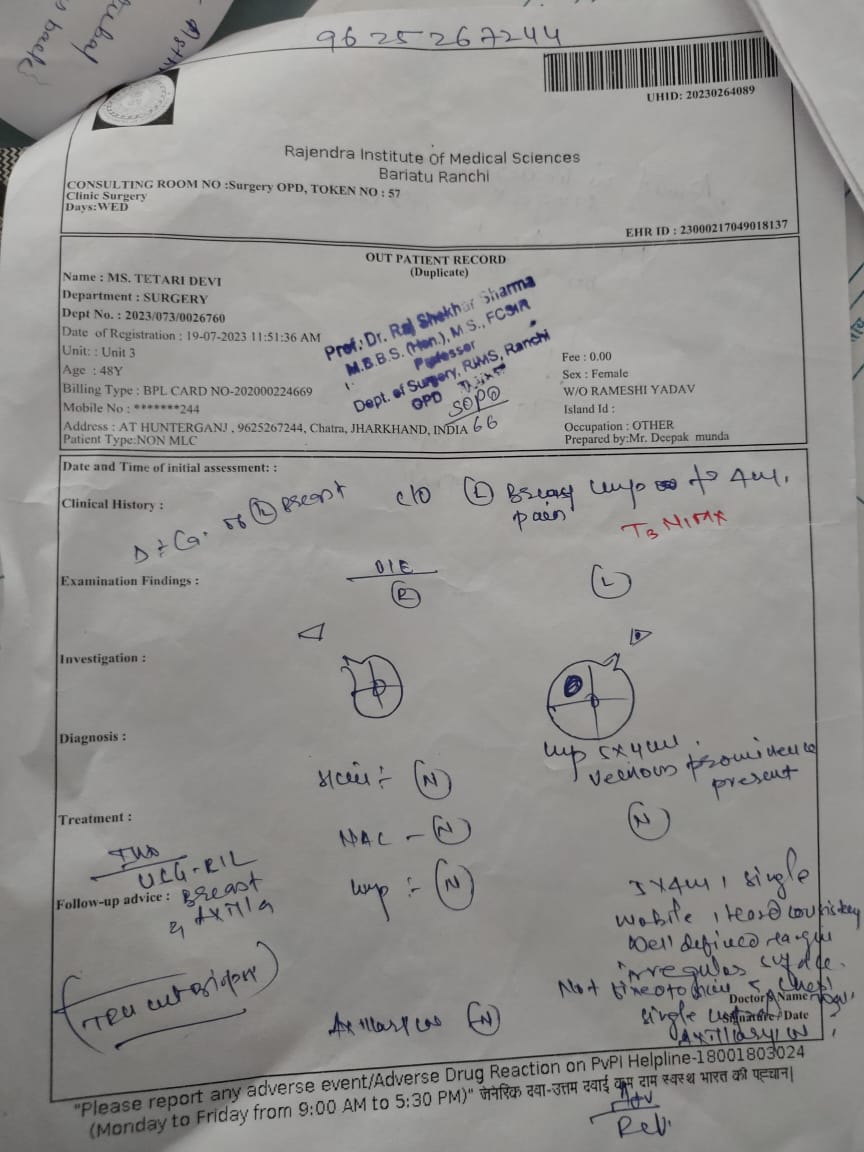 9625267244
UHID: 20230264089
Rajendra Institute Of Medical Sciences
Bariatu Ranchi
CONSULTING ROOM NO :Surgery OPD, TOKEN NO : 57
Clinic Surgery
Days:WED
EHR ID : 23000217049018137
OUT PATIENT RECORD
(Duplicate)
Name : MS. TETARI DEVI
Department : SURGERY
Dept No. : 2023/073/0026760
Date of Registration : 19-07-2023 11:51:36 AM
Unit: : Unit 3
Age : 48Y
Billing Type : BPL CARD NO-202000224669
Mobile No : *******244
Address : AT HUNTERGANJ , 9625267244, Chatra, JHARKHAND, INDIA
Patient Type:NON MLC
Prof. Dr. Raj Shekhar Sharma
M.B.B.S. (Hon.), M.S., FCSIR
Professor
Dept. of Surgery, RIMS, Ranchi
OPD
SOPD
66
Fee : 0.00
Sex : Female
W/O RAMESHI YADAV
Island Id :
Occupation : OTHER
Prepared by:Mr. Deepak munda
Date and Time of initial assessment: :
Clinical History :
c/o (L) Breast lump
pain
(L) Breast
T3 N1 MX
Examination Findings :
O/E
(R) (L)
Investigation :
Diagnosis :
lump 5x4cm
venous prominence
present
(N)
Treatment :
NAC - (N) (N)
USG - R/L
Follow-up advice : Breast
& Axilla
lump :- (N)
single
mobile, Hard
well defined
irregular
Tru cut biopsy
Not fixed to skin
Doctor Name
Signature / Date
single
Axillary LN
Axillary LN (N)
"Please report any adverse event/Adverse Drug Reaction on PvPI Helpline-18001803024
(Monday to Friday from 9:00 AM to 5:30 PM)" जेनेरिक दवा-उत्तम दवाई कम दाम स्वस्थ भारत की पहचान|
Adv